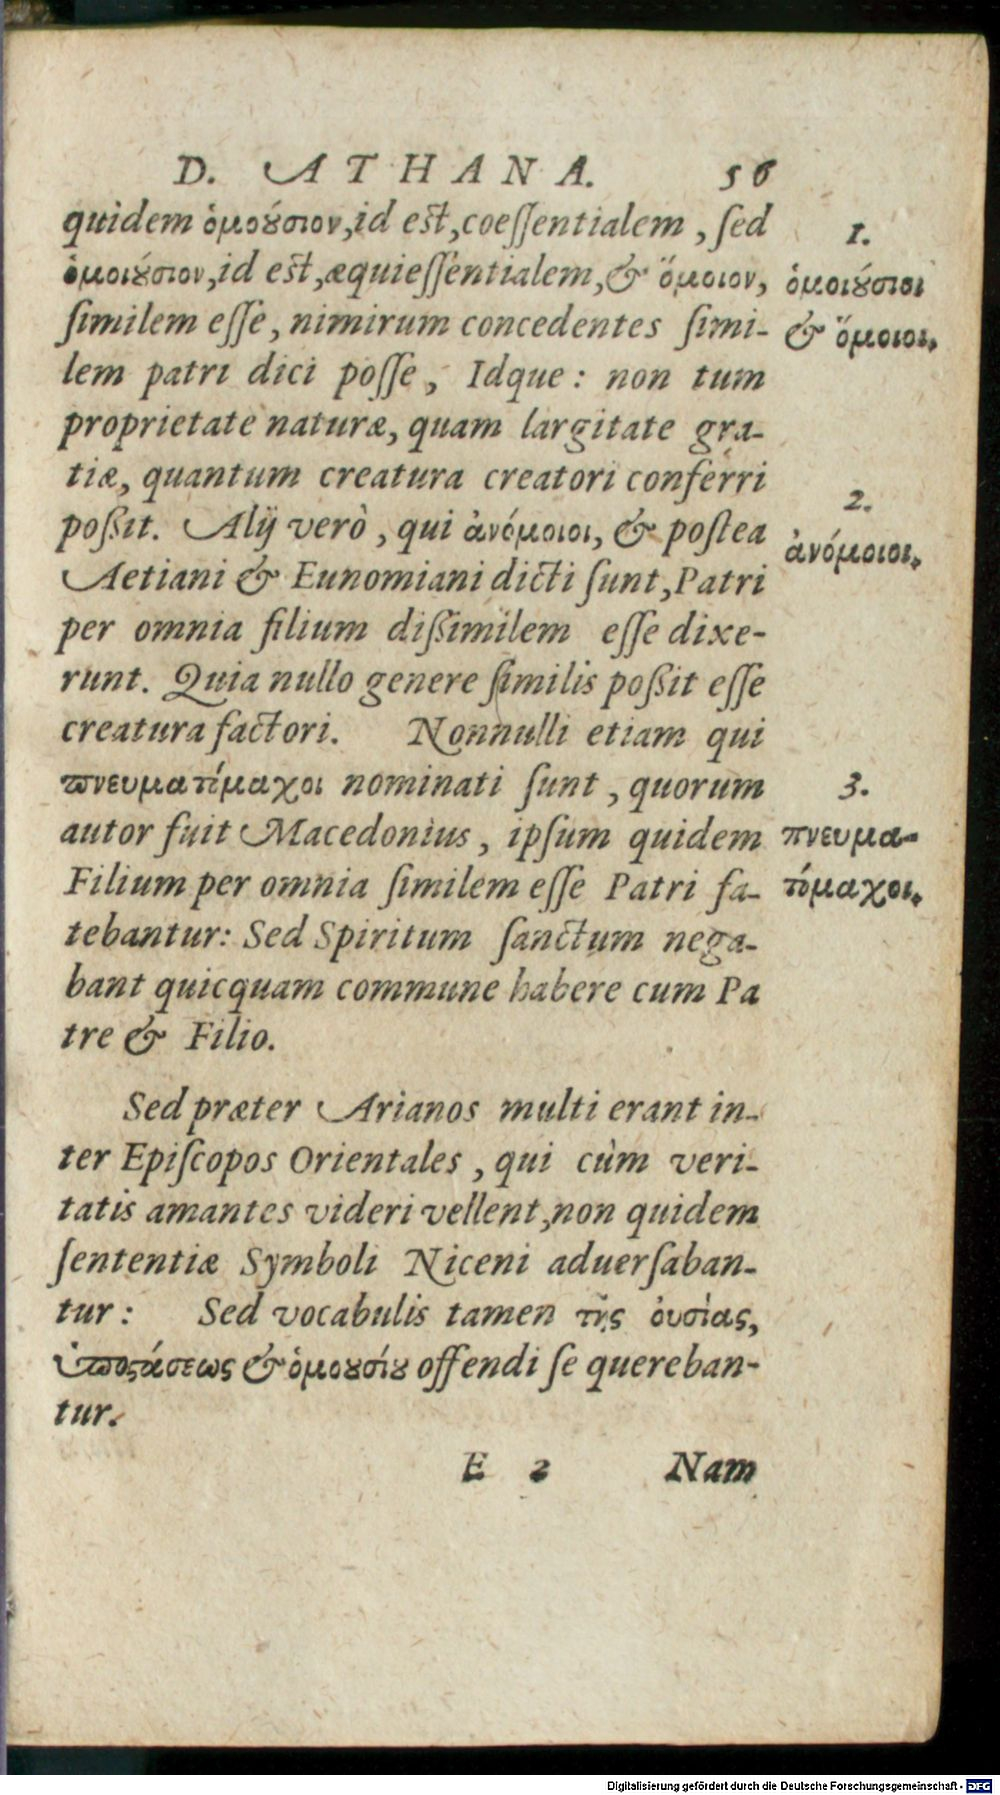 D. ATHANA. 56
quidem ὁμούσιον, id est, coeſſentialem, ſed
ὁμοιούσιον, id est, æquieſſentialem, & ὅμοιον,
ſimilem eſſe, nimirum concedentes ſimi-
lem patri dici poſſe, Idque: non tum
proprietate naturæ, quam largitate gra-
tiæ, quantum creatura creatori conferri
poßit. Alij verò, qui ἀνόμοιοι, & poſtea
Aetiani & Eunomiani dicti ſunt, Patri
per omnia filium dißimilem eſſe dixe-
runt. Quia nullo genere ſimilis poßit eſſe
creatura factori. Nonnulli etiam qui
πνευματίμαχοι nominati ſunt, quorum
autor fuit Macedonius, ipſum quidem
Filium per omnia ſimilem eſſe Patri fa-
tebantur: Sed Spiritum ſanctum nega-
bant quicquam commune habere cum Pa
tre & Filio.
1.
ὁμοιούσιοι
& ὅμοιοι.
2.
ἀνόμοιοι.
3.
πνευμα-
τόμαχοι.
Sed præter Arianos multi erant in-
ter Epiſcopos Orientales, qui cùm veri-
tatis amantes videri vellent, non quidem
ſententiæ Symboli Niceni aduerſaban-
tur: Sed vocabulis tamen τῆς ὀυσίας,
ὑποστάσεως & ὁμουσίου offendi ſe quereban-
tur.
E 2 Nam
Digitalisierung gefördert durch die Deutsche Forschungsgemeinschaft - DFG